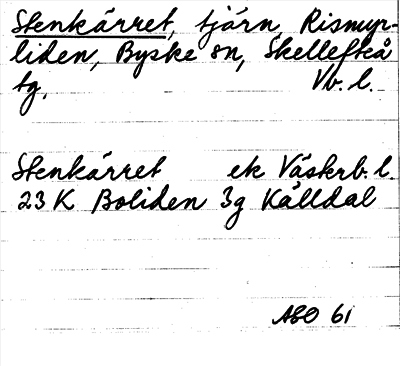 Stenkärret, tjärn, Rismyr-
liden, Byske sn, Skellefteå
tg, Vb. l.
Stenkärret ek Västerb. l.
23 K Boliden 3g Källdal
ABO 61